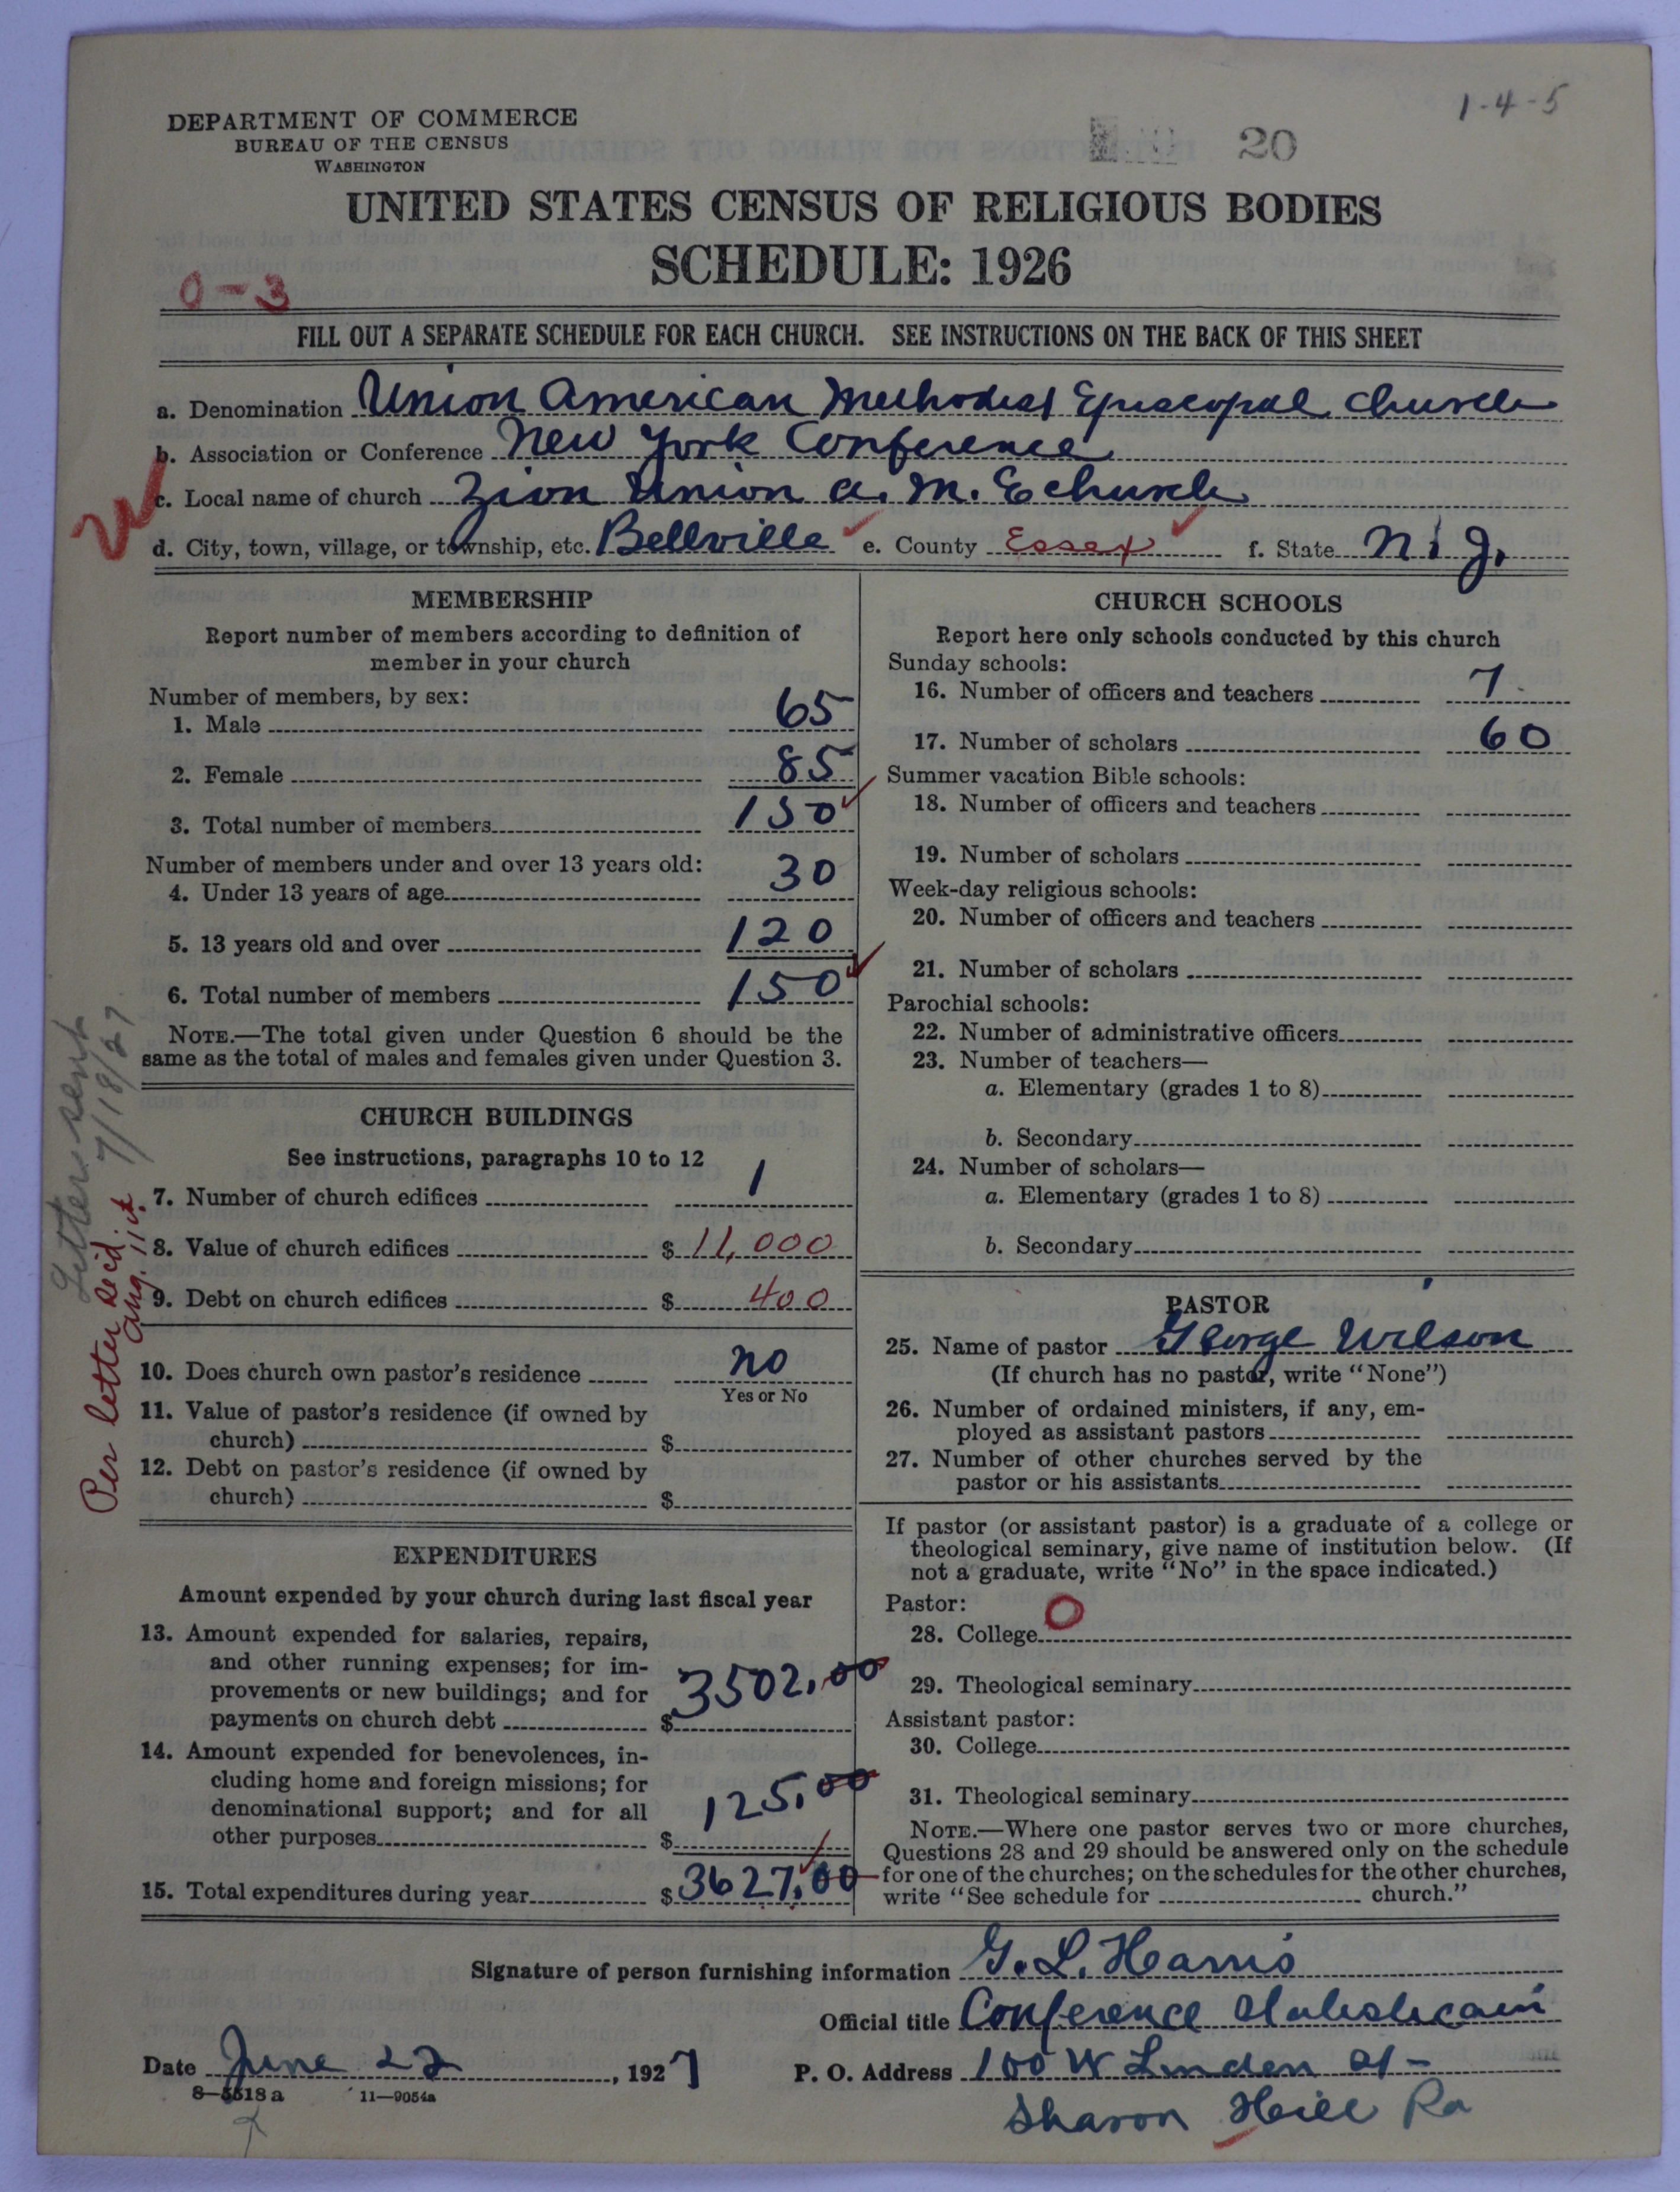 1-4-5
DEPARTMENT OF COMMERCE
BUREAU OF THE CENSUS
WASHINGTON
20
UNITED STATES CENSUS OF RELIGIOUS BODIES
SCHEDULE: 1926
0-3
FILL OUT A SEPARATE SCHEDULE FOR EACH CHURCH. SEE INSTRUCTIONS ON THE BACK OF THIS SHEET
a. Denomination Union American Methodist Episcopal Church
b. Association or Conference New York Conference
c. Local name of church Zion Union A. M. E Church
d. City, town, village, or township, etc. Bellville e. County Essex f. State N. J.
MEMBERSHIP
Report number of members according to definition of
member in your church
Number of members, by sex:
1. Male 65
2. Female 85
3. Total number of members 150
Number of members under and over 13 years old:
4. Under 13 years of age 30
5. 13 years old and over 120
6. Total number of members 150
NOTE.—The total given under Question 6 should be the
same as the total of males and females given under Question 3.
Letter sent
7/18/27
CHURCH BUILDINGS
See instructions, paragraphs 10 to 12
7. Number of church edifices 1
8. Value of church edifices $ 11,000
9. Debt on church edifices $ 400
Per letter rec'd
Aug. 11th
10. Does church own pastor's residence no
Yes or No
11. Value of pastor's residence (if owned by
church) $
12. Debt on pastor's residence (if owned by
church) $
EXPENDITURES
Amount expended by your church during last fiscal year
13. Amount expended for salaries, repairs,
and other running expenses; for im-
provements or new buildings; and for
payments on church debt $ 3502.00
14. Amount expended for benevolences, in-
cluding home and foreign missions; for
denominational support; and for all
other purposes $ 125.00
15. Total expenditures during year $ 3627.00
CHURCH SCHOOLS
Report here only schools conducted by this church
Sunday schools:
16. Number of officers and teachers 7
17. Number of scholars 60
Summer vacation Bible schools:
18. Number of officers and teachers
19. Number of scholars
Week-day religious schools:
20. Number of officers and teachers
21. Number of scholars
Parochial schools:
22. Number of administrative officers
23. Number of teachers—
a. Elementary (grades 1 to 8)
b. Secondary
24. Number of scholars—
a. Elementary (grades 1 to 8)
b. Secondary
PASTOR
25. Name of pastor George Wilson
(If church has no pastor, write "None")
26. Number of ordained ministers, if any, em-
ployed as assistant pastors
27. Number of other churches served by the
pastor or his assistants
If pastor (or assistant pastor) is a graduate of a college or
theological seminary, give name of institution below. (If
not a graduate, write "No" in the space indicated.)
Pastor:
28. College O
29. Theological seminary
Assistant pastor:
30. College
31. Theological seminary
NOTE.—Where one pastor serves two or more churches,
Questions 28 and 29 should be answered only on the schedule
for one of the churches; on the schedules for the other churches,
write "See schedule for church."
Signature of person furnishing information G. L. Harris
Official title Conference
Date June 22, 1927 P. O. Address 100 W Linden St-
8-5518a 11-9054a
Sharon Hill Pa